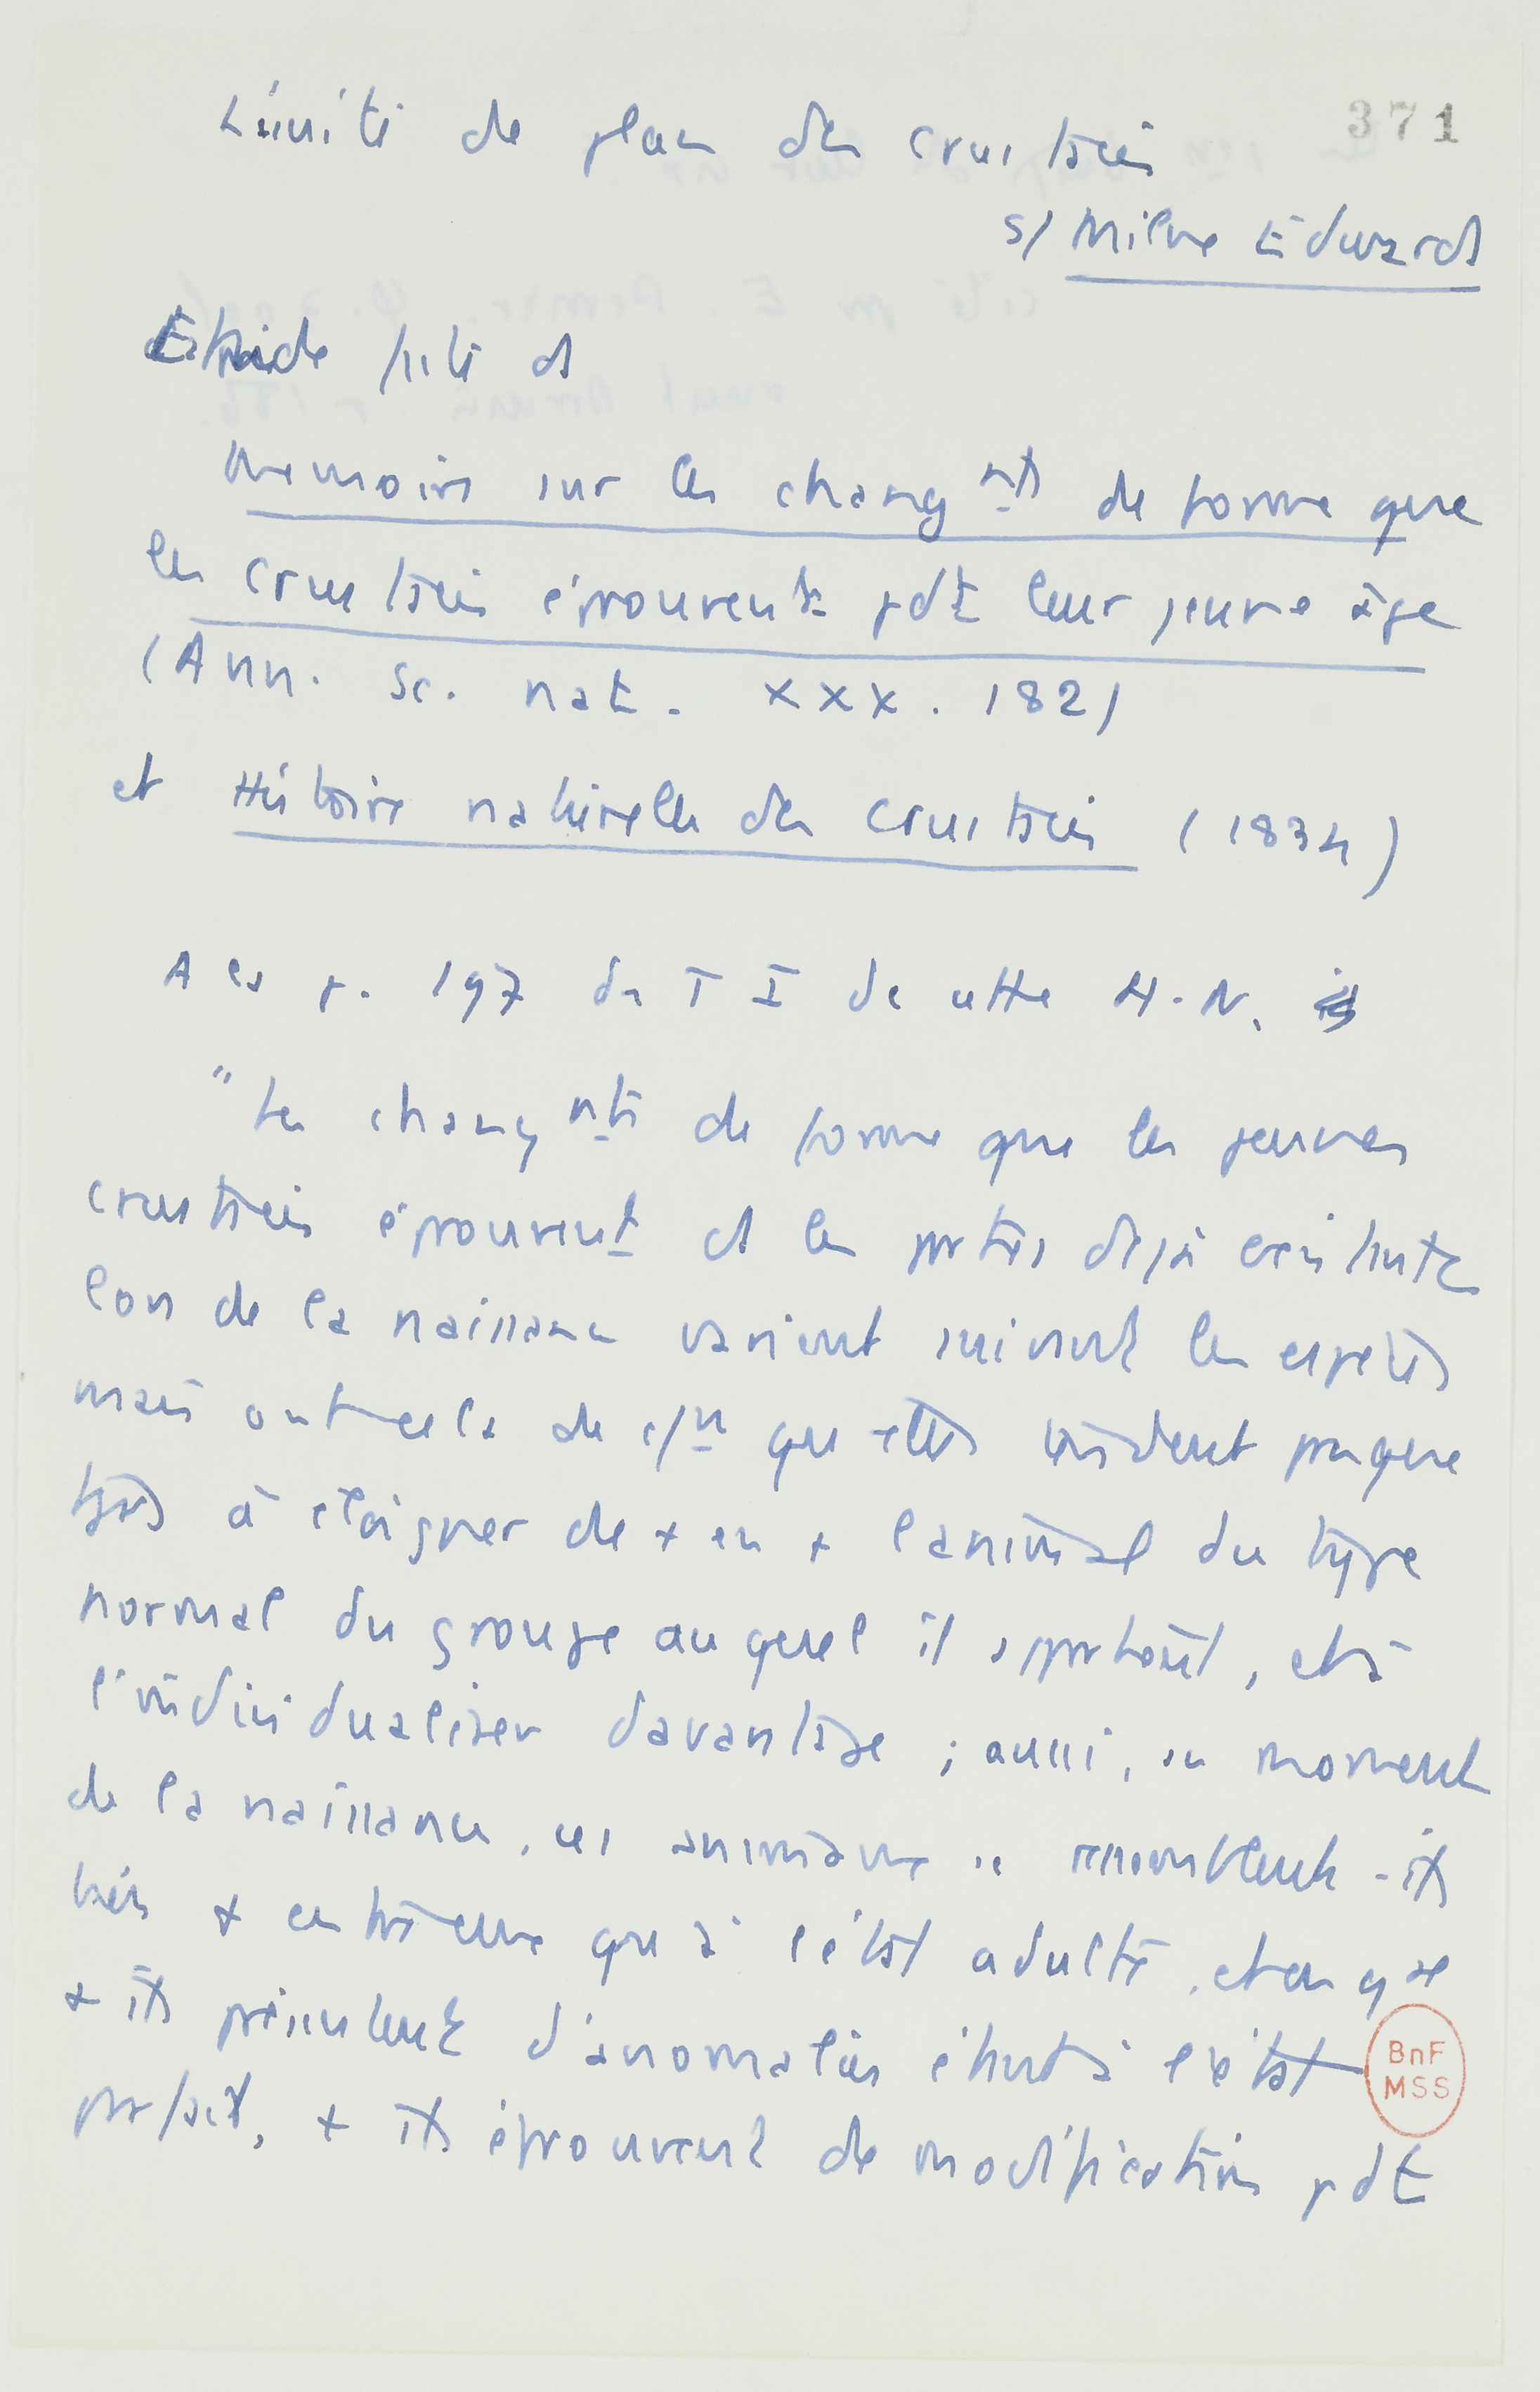 371
L'unité de plan des crustacés
s/ Milne Edwards
Etude faite ds
Memoire sur les changnts de forme que
les crustacés éprouvent pdt leur jeune âge
(Ann. Sc. nat. XXX. 182)
et Histoire naturelle des crustacés (1834)
A la p. 197 du T I de cette H. N.
"Les changnts de forme que les jeunes
crustacés éprouvent ds les parties déjà existantes
lors de la naissance varient suivant les espèces
mais ont cela de c/n qu'elles tendent presque
tjrs à éloigner de + en + l'animal du type
normal du groupe auquel il appartient, et à
l'individualiser davantage ; aussi, au moment
de la naissance, ces animaux se ressemblent-ils
bien + entre eux qu'à l'état adulte, et en gal
+ ils présentent d'anomalies étant à l'état
parfait, + ils éprouvent de modifications pdt
BnF
MSS